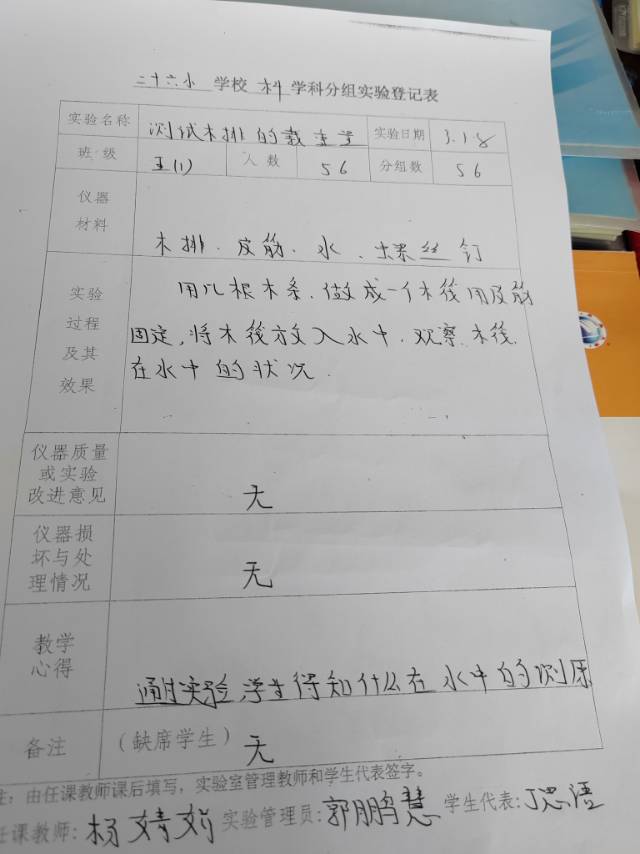 三十六小 学校 科 学科分组实验登记表
实验名称 测试木排的载重量 实验日期 3.18
班级 五(1) 人数 56 分组数 56
仪器
材料
木排、皮筋、水、螺丝钉
实验
过程
及其
效果
用几根木条、做成一个木筏用皮筋
固定,将木筏放入水中.观察木筏.
在水中的状况.
仪器质量
或实验
改进意见
无
仪器损
坏与处
理情况
无
教学
心得
通过实验学生得知什么在水中的
备注 (缺席学生) 无
注:由任课教师课后填写,实验室管理教师和学生代表签字。
任课教师: 杨 实验管理员: 郭鹏慧 学生代表: 丁思语